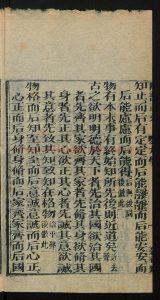 知止而后有定定而后能靜靜而后能安安而
后能慮慮而后能得
物有本末事有終始知所先後則近道矣
古之欲明明德於天下者先治其國欲治其國
者先齊其家欲齊其家者先脩其身欲脩其
身者先正其心欲正其心者先誠其意欲誠
其意者先致其知致知在格物
物格而后知至知至而后意誠意誠而后心正
心正而后身脩身脩而后家齊家齊而后國